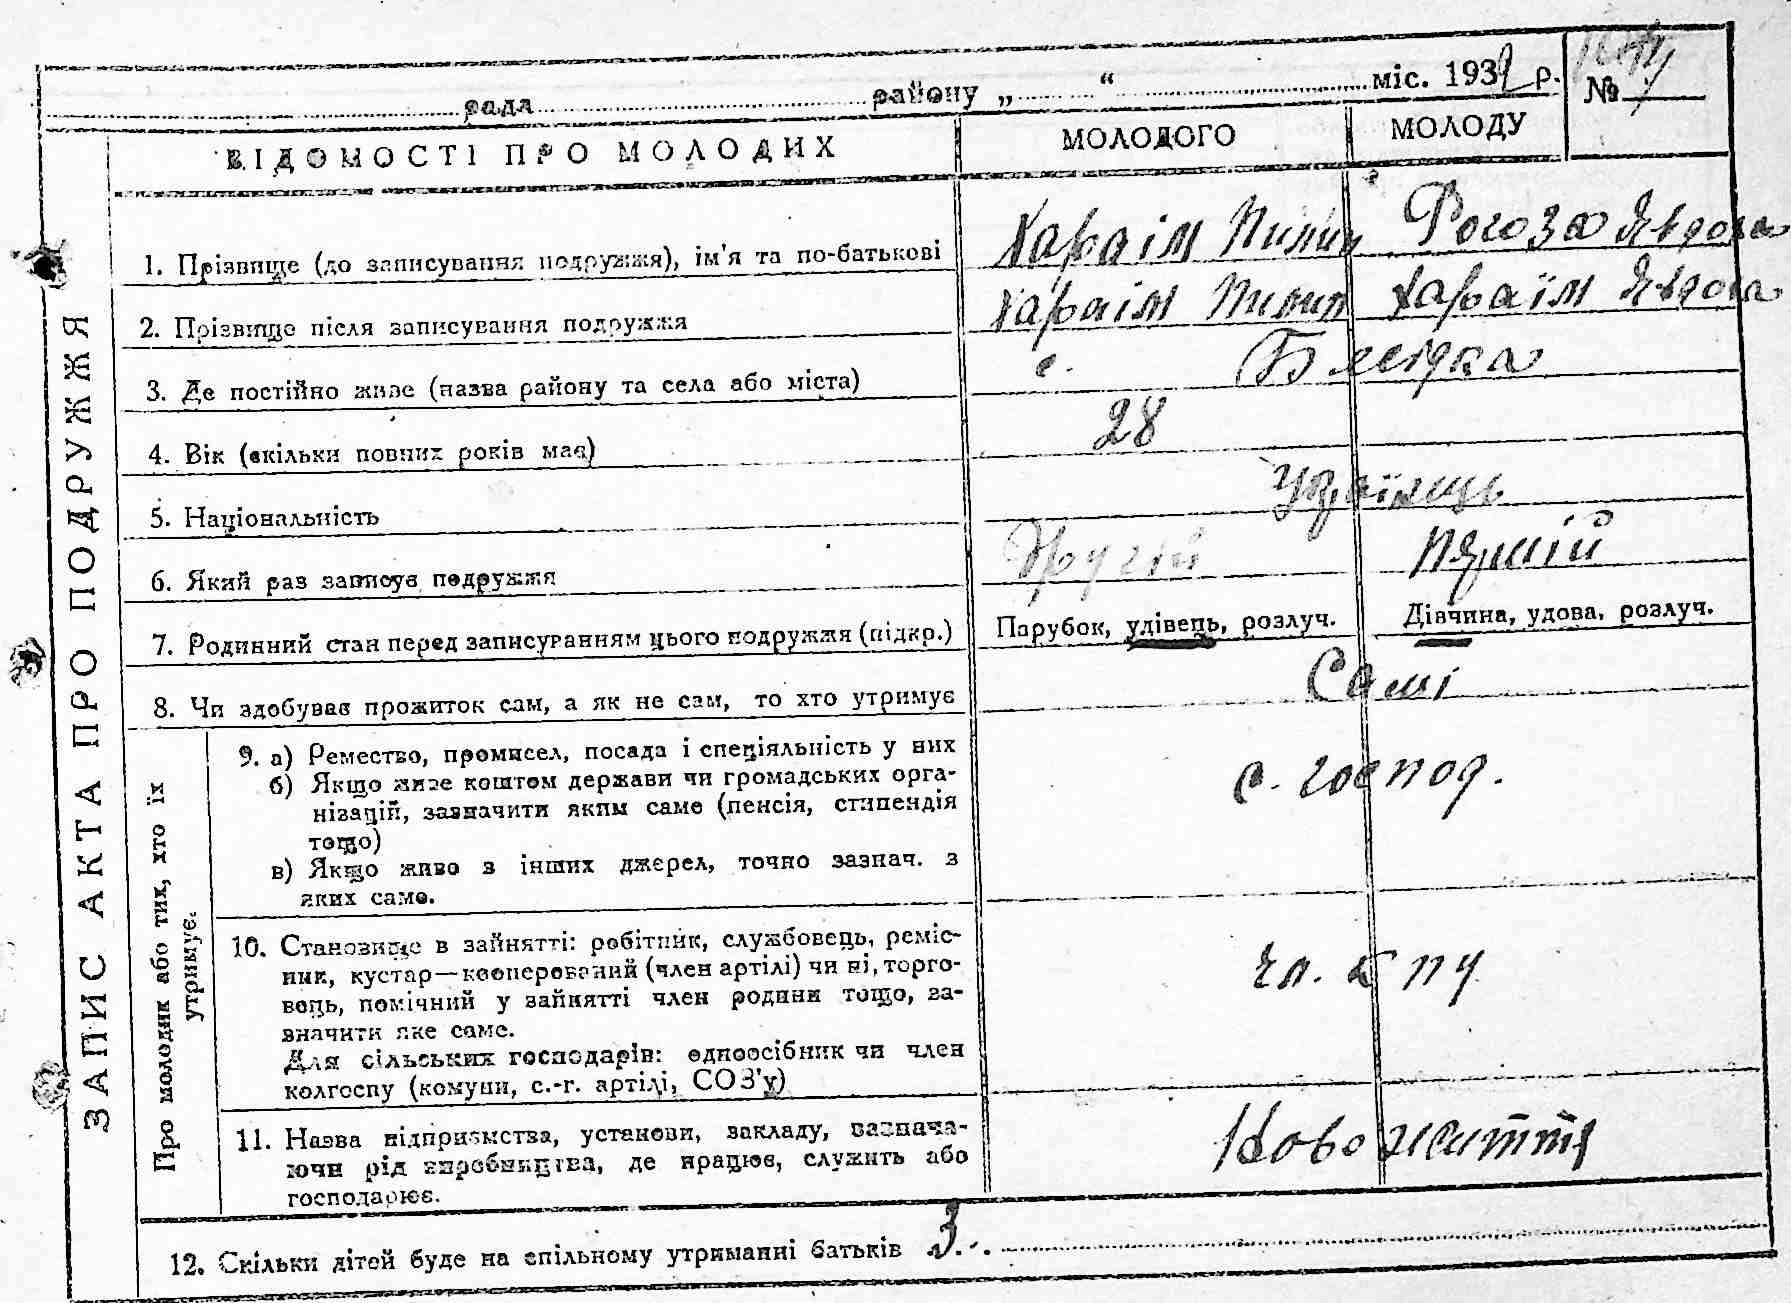 рада районну „ “ міс. 1932 р.
№
ВІДОМОСТІ ПРО МОЛОДИХ МОЛОДОГО МОЛОДУ
ЗАПИС АКТА ПРО ПОДРУЖЖЯ
1. Прізвище (до записування подружжя), ім'я та по-батькові Хараім Пилип Рогоза Явдоха
2. Прізвище після записування подружжя Хараім Пилип Хараїм Явдоха
3. Де постійно живе (назва району та села або міста) с.
4. Вік (скільки повних років має) 28
5. Національність Українець
6. Який раз записує подружжя Другій Перший
7. Родинний стан перед записуванням цього подружжя (підкр.) Парубок, удівець, розлуч. Дівчина, удова, розлуч.
8. Чи здобуває прожиток сам, а як не сам, то хто утримує Самі
Про молодих або тих, хто їх
утримує.
9. а) Ремество, промисел, посада і спеціяльність у них с. господ.
б) Якщо живе коштом держави чи громадських орга-
нізацій, зазначити яким саме (пенсія, стипендія
тощо)
в) Якщо живе з інших джерел, точно зазнач. з
яких саме.
10. Становище в зайнятті: робітник, службовець, реміс-
ник, кустар—кооперований (член артілі) чи ні, торго-
вець, помічний у зайнятті член родини тощо, за-
значити яке саме.
Для сільських господарів: одноосібник чи член
колгоспу (комуни, с.-г. артілі, СОЗ'у)
чл.
11. Назва підприємства, установи, закладу, зазнача-
ючи рід виробництва, де працює, служить або
господарює.
Нове життя
12. Скільки дітей буде на спільному утриманні батьків 3